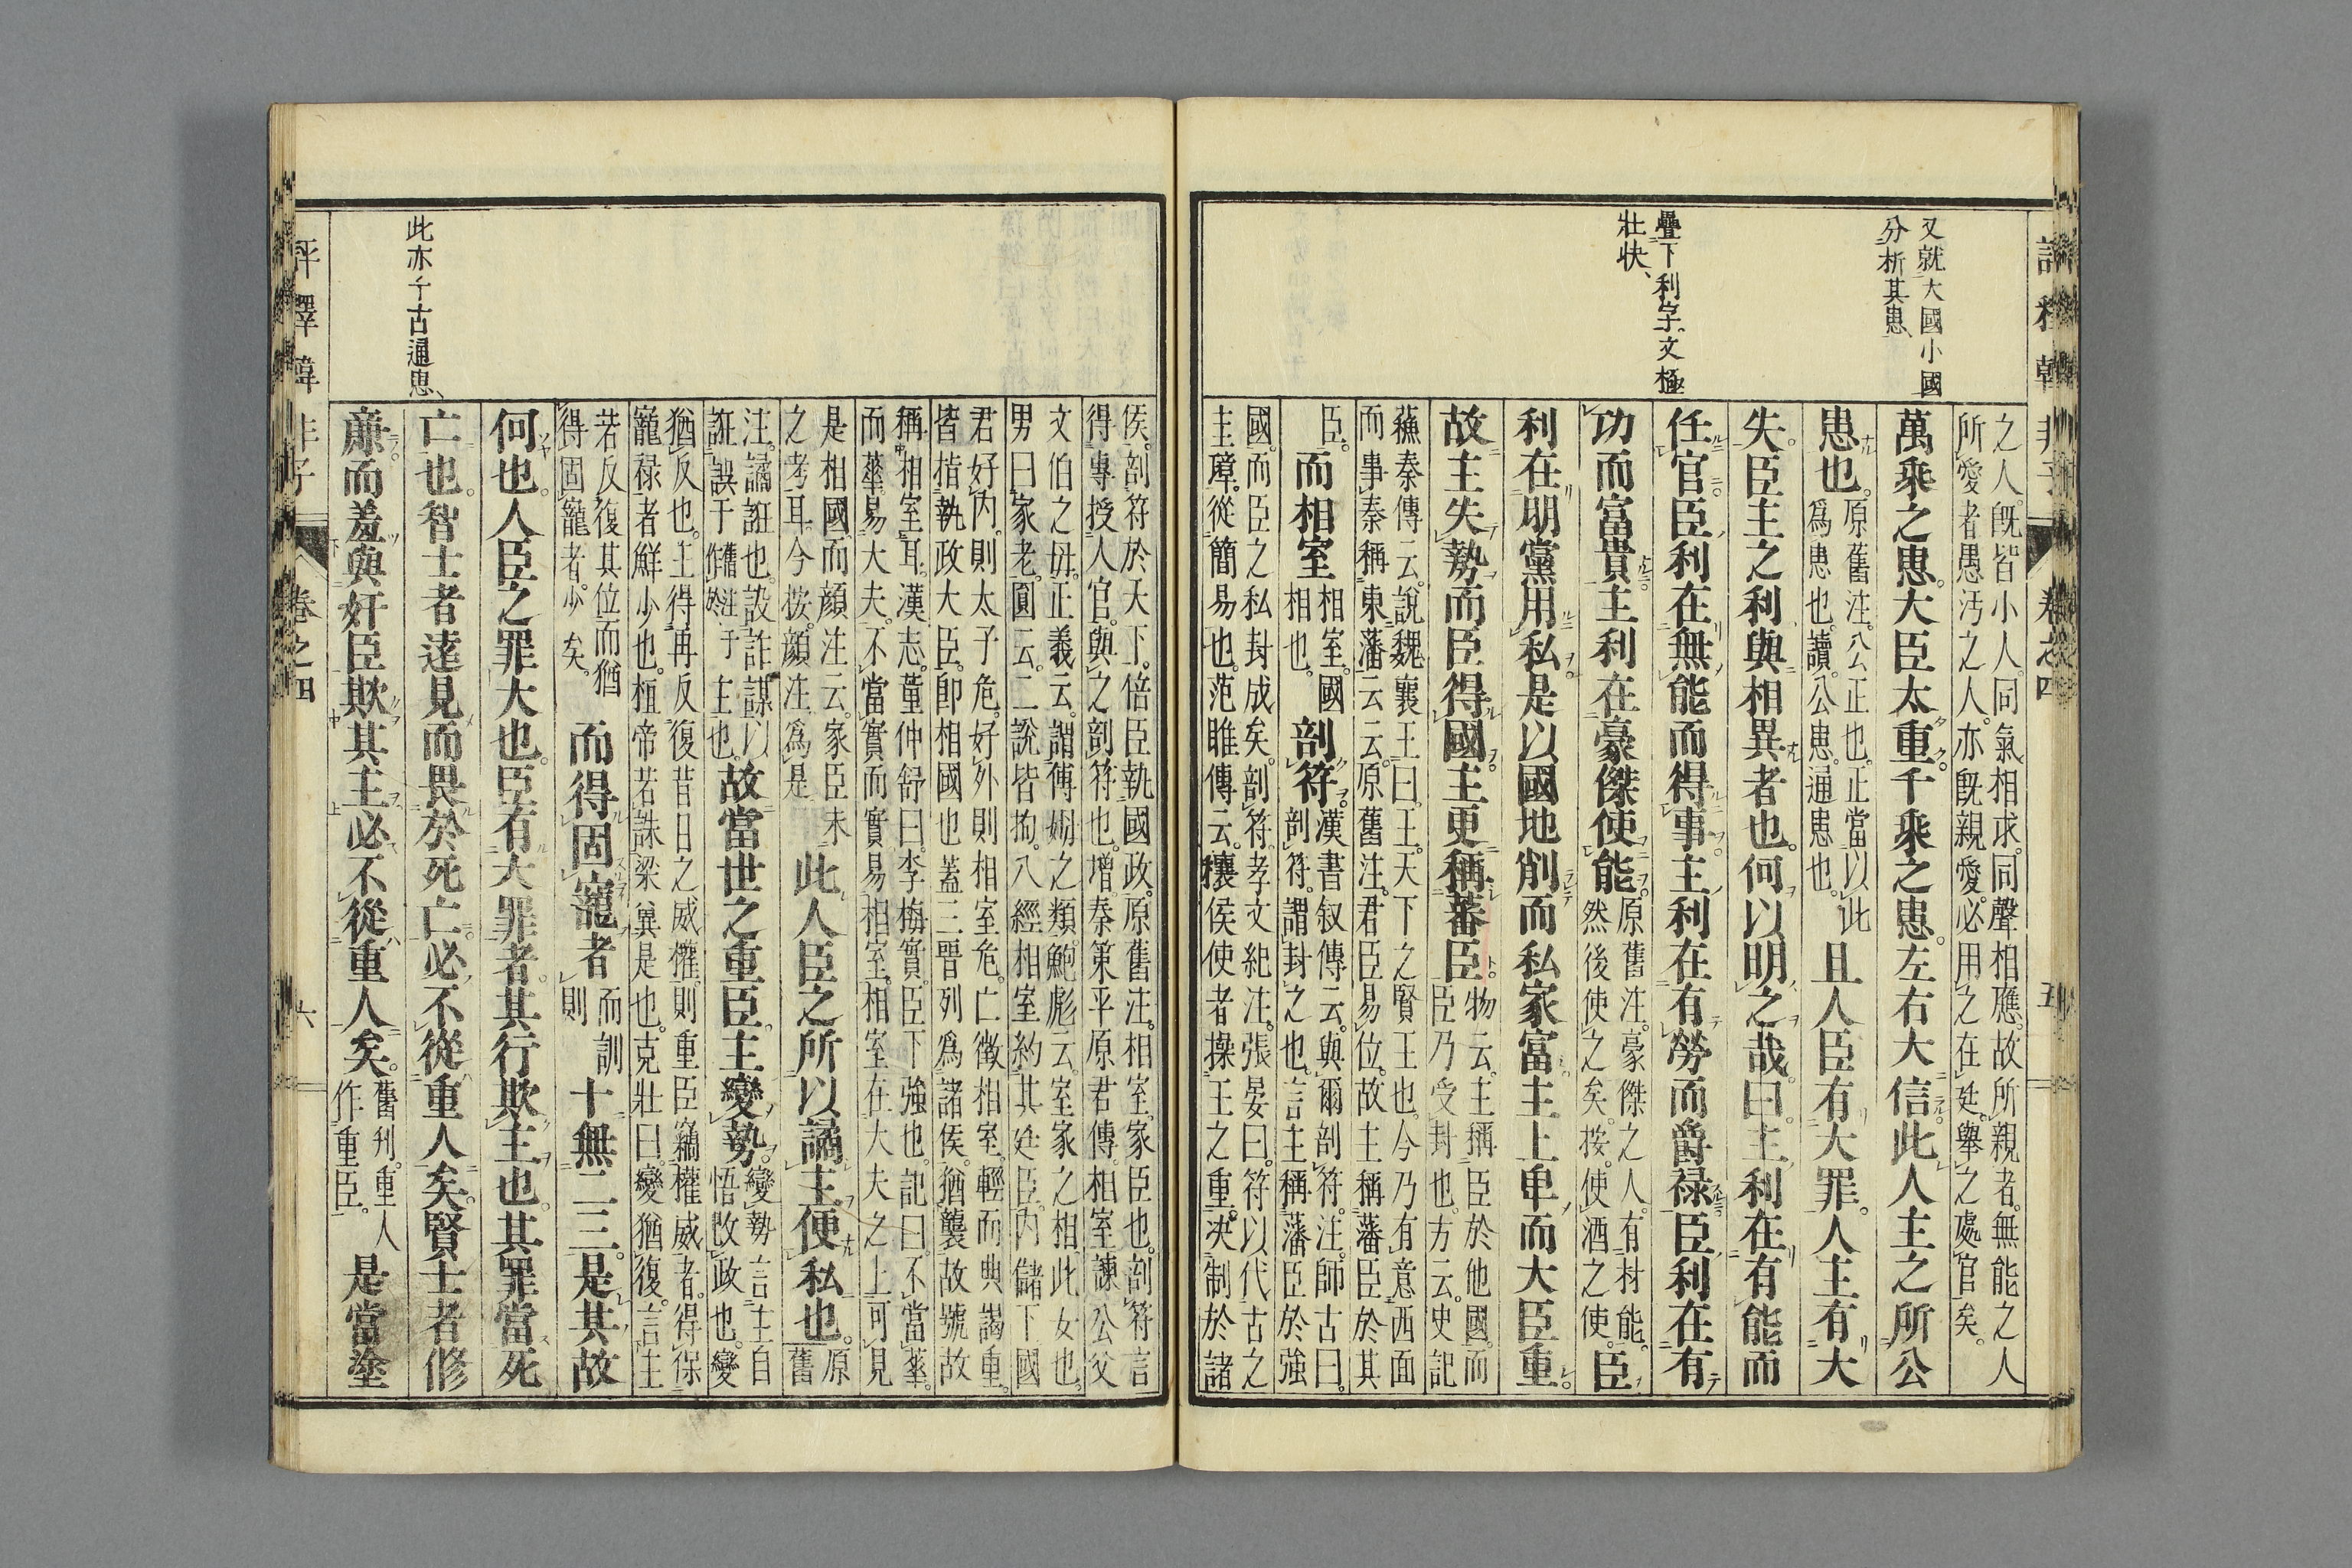 又就大國小國
分析其患、
疊下利字。文極
壯快、
之人。既皆小人。同氣相求。同聲相應。故所親者。無能之人
所愛者愚汚之人。亦既親愛。必用之在廷。舉之處官矣。
萬乘之患。大臣太重。千乘之患。左右大信。此人主之所公
患也。原舊注。公正也。正當以此
爲患也。讀。公患。通患也。且人臣有大罪。人主有大
失。臣主之利與相異者也。何以明之哉。曰。主利在有能而
任官。臣利在無能而得事。主利在有勞而爵祿。臣利在有
功而富貴。主利在豪傑使能。原舊注。豪傑之人。有材能。
然後使之矣。按。使酒之使。臣
利在朋黨用私。是以國地削而私家富。主上卑而大臣重。
故主失勢而臣得國。主更稱蕃臣。物云。主稱臣於他國。而
臣乃受封也。方云。史記
蘇秦傳云。說魏襄王曰。王。天下之賢王也。今乃有意西面
而事秦。稱東藩云云。原舊注。君臣易位。故主稱藩臣於其
臣。而相室相室。國
相也。剖符。漢書叙傳云。與爾剖符。注。師古曰。
剖符。謂封之也。言主稱藩臣於強
國。而臣之私封成矣。剖符。孝文紀注。張晏曰。符以代古之
圭璋。從簡易也。范雎傳云。穰侯使者操王之重。決制於諸
評釋韓非子 卷之四 五
侯。剖符於天下。倍臣執國政。原舊注。相室。家臣也。剖符言
得專授人官。與之剖符也。增。秦策平原君傳。相室諫公父
文伯之母。正義云。謂傅姆之類。鮑彪云。室家之相。此女也。
男曰家老。圓云。二說皆拘。八經相室約其廷臣。內儲下國
君好內。則太子危。好外則相室危。亡徵相室。輕而典謁重。
皆指執政大臣。卽相國也。蓋三晉列爲諸侯。猶襲故號故
稱相室耳。漢志。董仲舒曰。李梅實。臣下強也。記曰。不當華
而華。易大夫。不當實而實易相室。相室在大夫之上。可見
是相國。而顔注云。家臣未
之考耳。今按。顔注爲是此人臣之所以譎主便私也。原
舊
注。譎誑也。設詐謀以
誑誤于主也。故當世之重臣。主變勢。變勢。言主自
悟改政也。變
猶反也。主得再反復昔日之威權。則重臣竊權威者。得保
寵祿者鮮少也。桓帝若誅梁冀是也。克壯曰。變猶復。言主
若反復其位。而猶
得固寵者。少矣。而得固寵者而訓
則十無二三。是其故
何也。人臣之罪大也。臣有大罪者。其行欺主也。其罪當死
亡也。智士者遠見而畏於死亡。必不從重人矣。賢士者修
廉而羞與奸臣欺其主。必不從重人矣。舊刋。重人
作重臣。是當塗
此亦千古通患、
評釋韓非子 卷之四 六